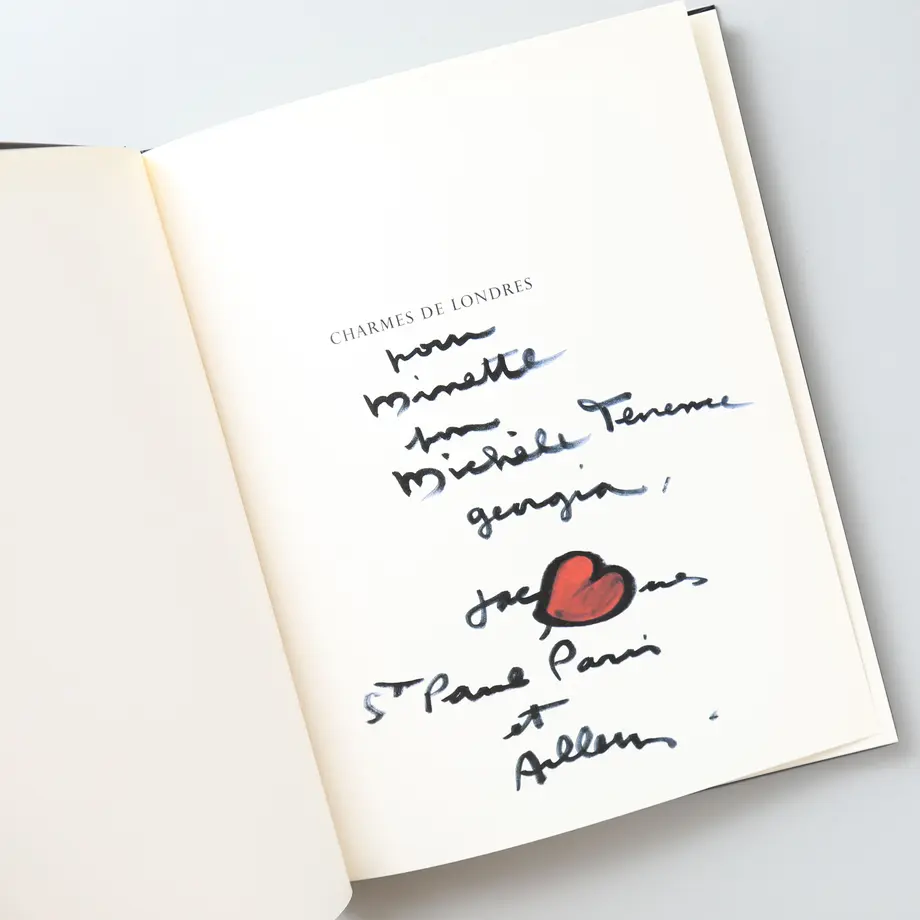 CHARMES DE LONDRES
pour
Minette
pour
Michèle Terence
georgia,
Jacques
St Paul Paris
et
Ailleurs.